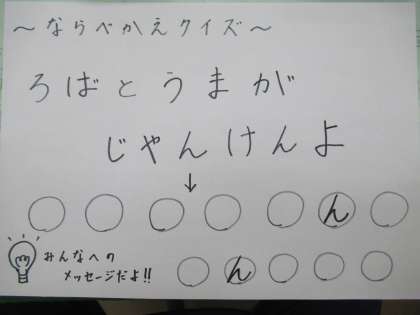 ～ならべかえクイズ～
ろばとうまが
じゃんけんよ
↓
○○○○○ん○
○ん○○○
みんなへの
メッセージだよ!!